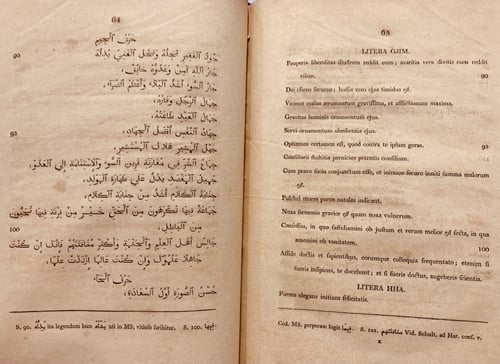 64
حَرْفُ ٱلْجِيمِ
90 جُودُ ٱلْفَقِيرِ يُجِلُّهُ وَبُخْلُ ٱلْغَنِيِّ يُذِلُّهُ
جَارُ ٱللهِ آمِنٌ وَعَدُوُّهُ خَايِفٌ،
جَارُ ٱلسُّوءِ أَشَدُّ ٱلْبَلَاءِ وَأَعْظَمُ ٱلضَّرَّاءِ،
جَمَالُ ٱلرَّجُلِ وَقَارُهُ،
جَمَالُ ٱلْعَبْدِ طَاعَتُهُ،
95 جِهَادُ ٱلنَّفْسِ أَفْضَلُ ٱلْجِهَادِ،
جَهْلُ ٱلْمُشِيرِ هَلَاكُ ٱلْمُسْتَشِيرِ،
جِمَاعُ ٱلشَّرِّ فِي مُقَارَنَةِ قَرِينِ ٱلسُّوءِ وَٱلْإِسْتِنَامَةِ إِلَى ٱلْعَدُوِّ،
جَمِيلُ ٱلْقَصْدِ يَدُلُّ عَلَى طَهَارَةِ ٱلْمَوْلِدِ،
ٱلْكَلَامِ أَشَدُّ مِنْ ٱلْكَلَامِ،
جَمَاعَةٌ فِيمَا تَكْرَهُونَ مِنَ ٱلْحَقِّ خَيْرٌ مِنْ فُرْقَةٍ فِيهَا تُحِبُّونَ
100 مِنَ ٱلْبَاطِلِ،
جَالِسْ أَهْلَ ٱلْعِلْمِ وَٱلْحِكْمَةِ وَأَكْثِرْ مُنَاقَلَتَهُمْ فَإِنَّكَ إِنْ كُنْتَ
جَاهِلًا عَلَّمُوكَ وَإِنْ كُنْتَ عَالِمًا ٱزْدَدْتَ عِلْمًا،
حَرْفُ ٱلْحَاءِ
حُسْنُ ٱلصُّورَةِ أَوَّلُ ٱلسَّعَادَةِ،
S. 90. يذلّه ita legendum hunc يذلّه uti in MS. vitiose scribitur. S. 100. فيها
65
LITERA GJIM.
Pauperis liberalitas illustrem reddit eum; avaritia vero divitis eum reddit
vilem. 90
Dei cliens securus; hostis vero ejus timidus est.
Vicinus malus aerumnarum gravissima, et afflictionum maxima.
Gravitas hominis ornamentum ejus.
Servi ornamentum obedientia ejus.
Optimum certamen est, quod contra te ipsum geras. 95
Consiliarii stultitia pernicies petentis consilium.
Cum pravo socio conjunctum esse, et inimico secure inniti summa malorum
est.
Pulchri mores puros natales indicant.
Noxa sermonis gravior est quam noxa vulnerum.
Consessus, in quo fastidiamini ob justum et verum melior est secta, in qua
amemini ob vanitatem. 100
Asside doctis et sapientibus, eorumque colloquiis frequentato; etenim si
fueris insipiens, te docebunt; et si fueris doctus, augeberis scientia.
LITERA HHA.
Forma elegans initium felicitatis.
Cod. MS. perperam legit فيما S. 101. مناقلتهم Vid. Schult. ad Har. conf. v.
K